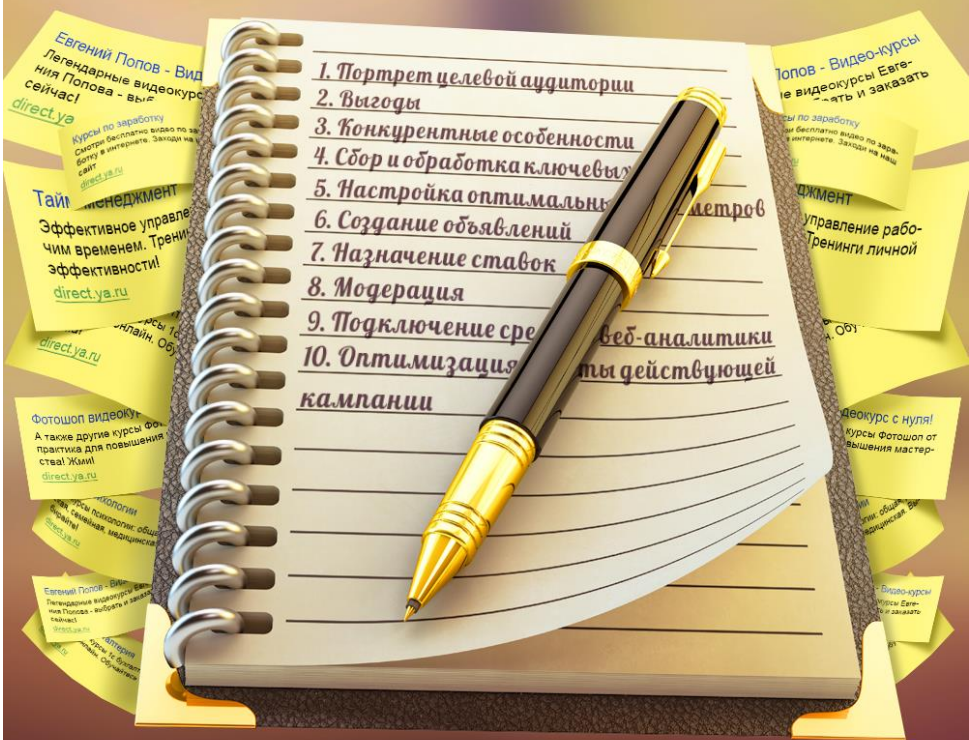 1. Портрет целевой аудитории
2. Выгоды
3. Конкурентные особенности
4. Сбор и обработка ключевых
5. Настройка оптимальны метров
6. Создание объявлений
7. Назначение ставок
8. Модерация
9. Подключение сре веб-аналитики
10. Оптимизация ты действующей
кампании
Евгений Попов - Вид
Легендарные видеокурс
ния Попова - выб
сейчас!
direct.ya
Курсы по заработку
Смотри бесплатно видео по за
ботку в интернете. Заходи на наш
сайт
direct.ya.ru
Тайм менеджмент
Эффективное управле
чим временем. Тренин
эффективности!
direct.ya.ru
нлайн. Обу
direct.ya.ru
Фотошоп видеокур
А также другие курсы Фо
практика для повышения
ства! Жми!
direct.ya.ru
ихологии
рсы психологии: обща
ая, семейная, медицинска
бирайте!
direct.ya.ru
Евгений Попов - Вид
Легендарные видеокурсы Евге
ния Попова - выбрать и заказа
сейчас!
direct.ya.ru
алтерия
курсы 1с бухгалт
нлайн. Обучайтесь
Попов - Видео-курсы
е видеокурсы Евге-
брать и заказать
сы по заработку
ри бесплатно видео по зара-
в интернете. Заходи на наш
ya.ru
джмент
управление рабо-
Тренинги личной
н. Обу
деокурс с нуля!
курсы Фотошоп от
вышения мастер-
огии
дицинская. Вы
- Видео-курсы
урсы Евге-
ь и заказать